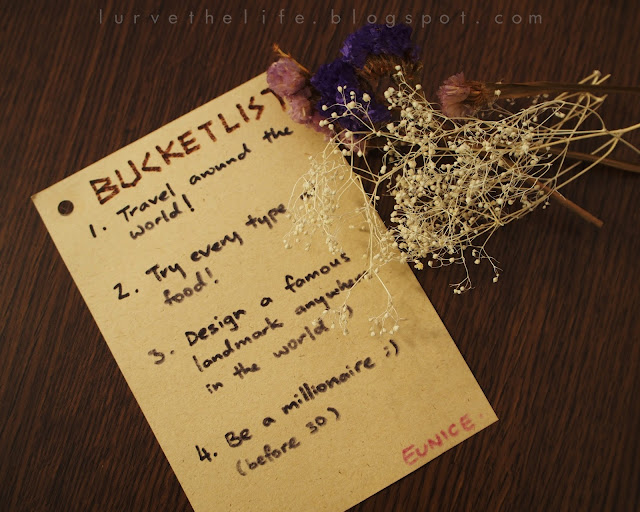 lurvethelife.blogspot.com
BUCKETLIST
1. Travel around the
world!
2. Try every type
food!
3. Design a famous
landmark anywhere
in the world :)
4. Be a millionaire ;)
(before 30)
EUNICE.